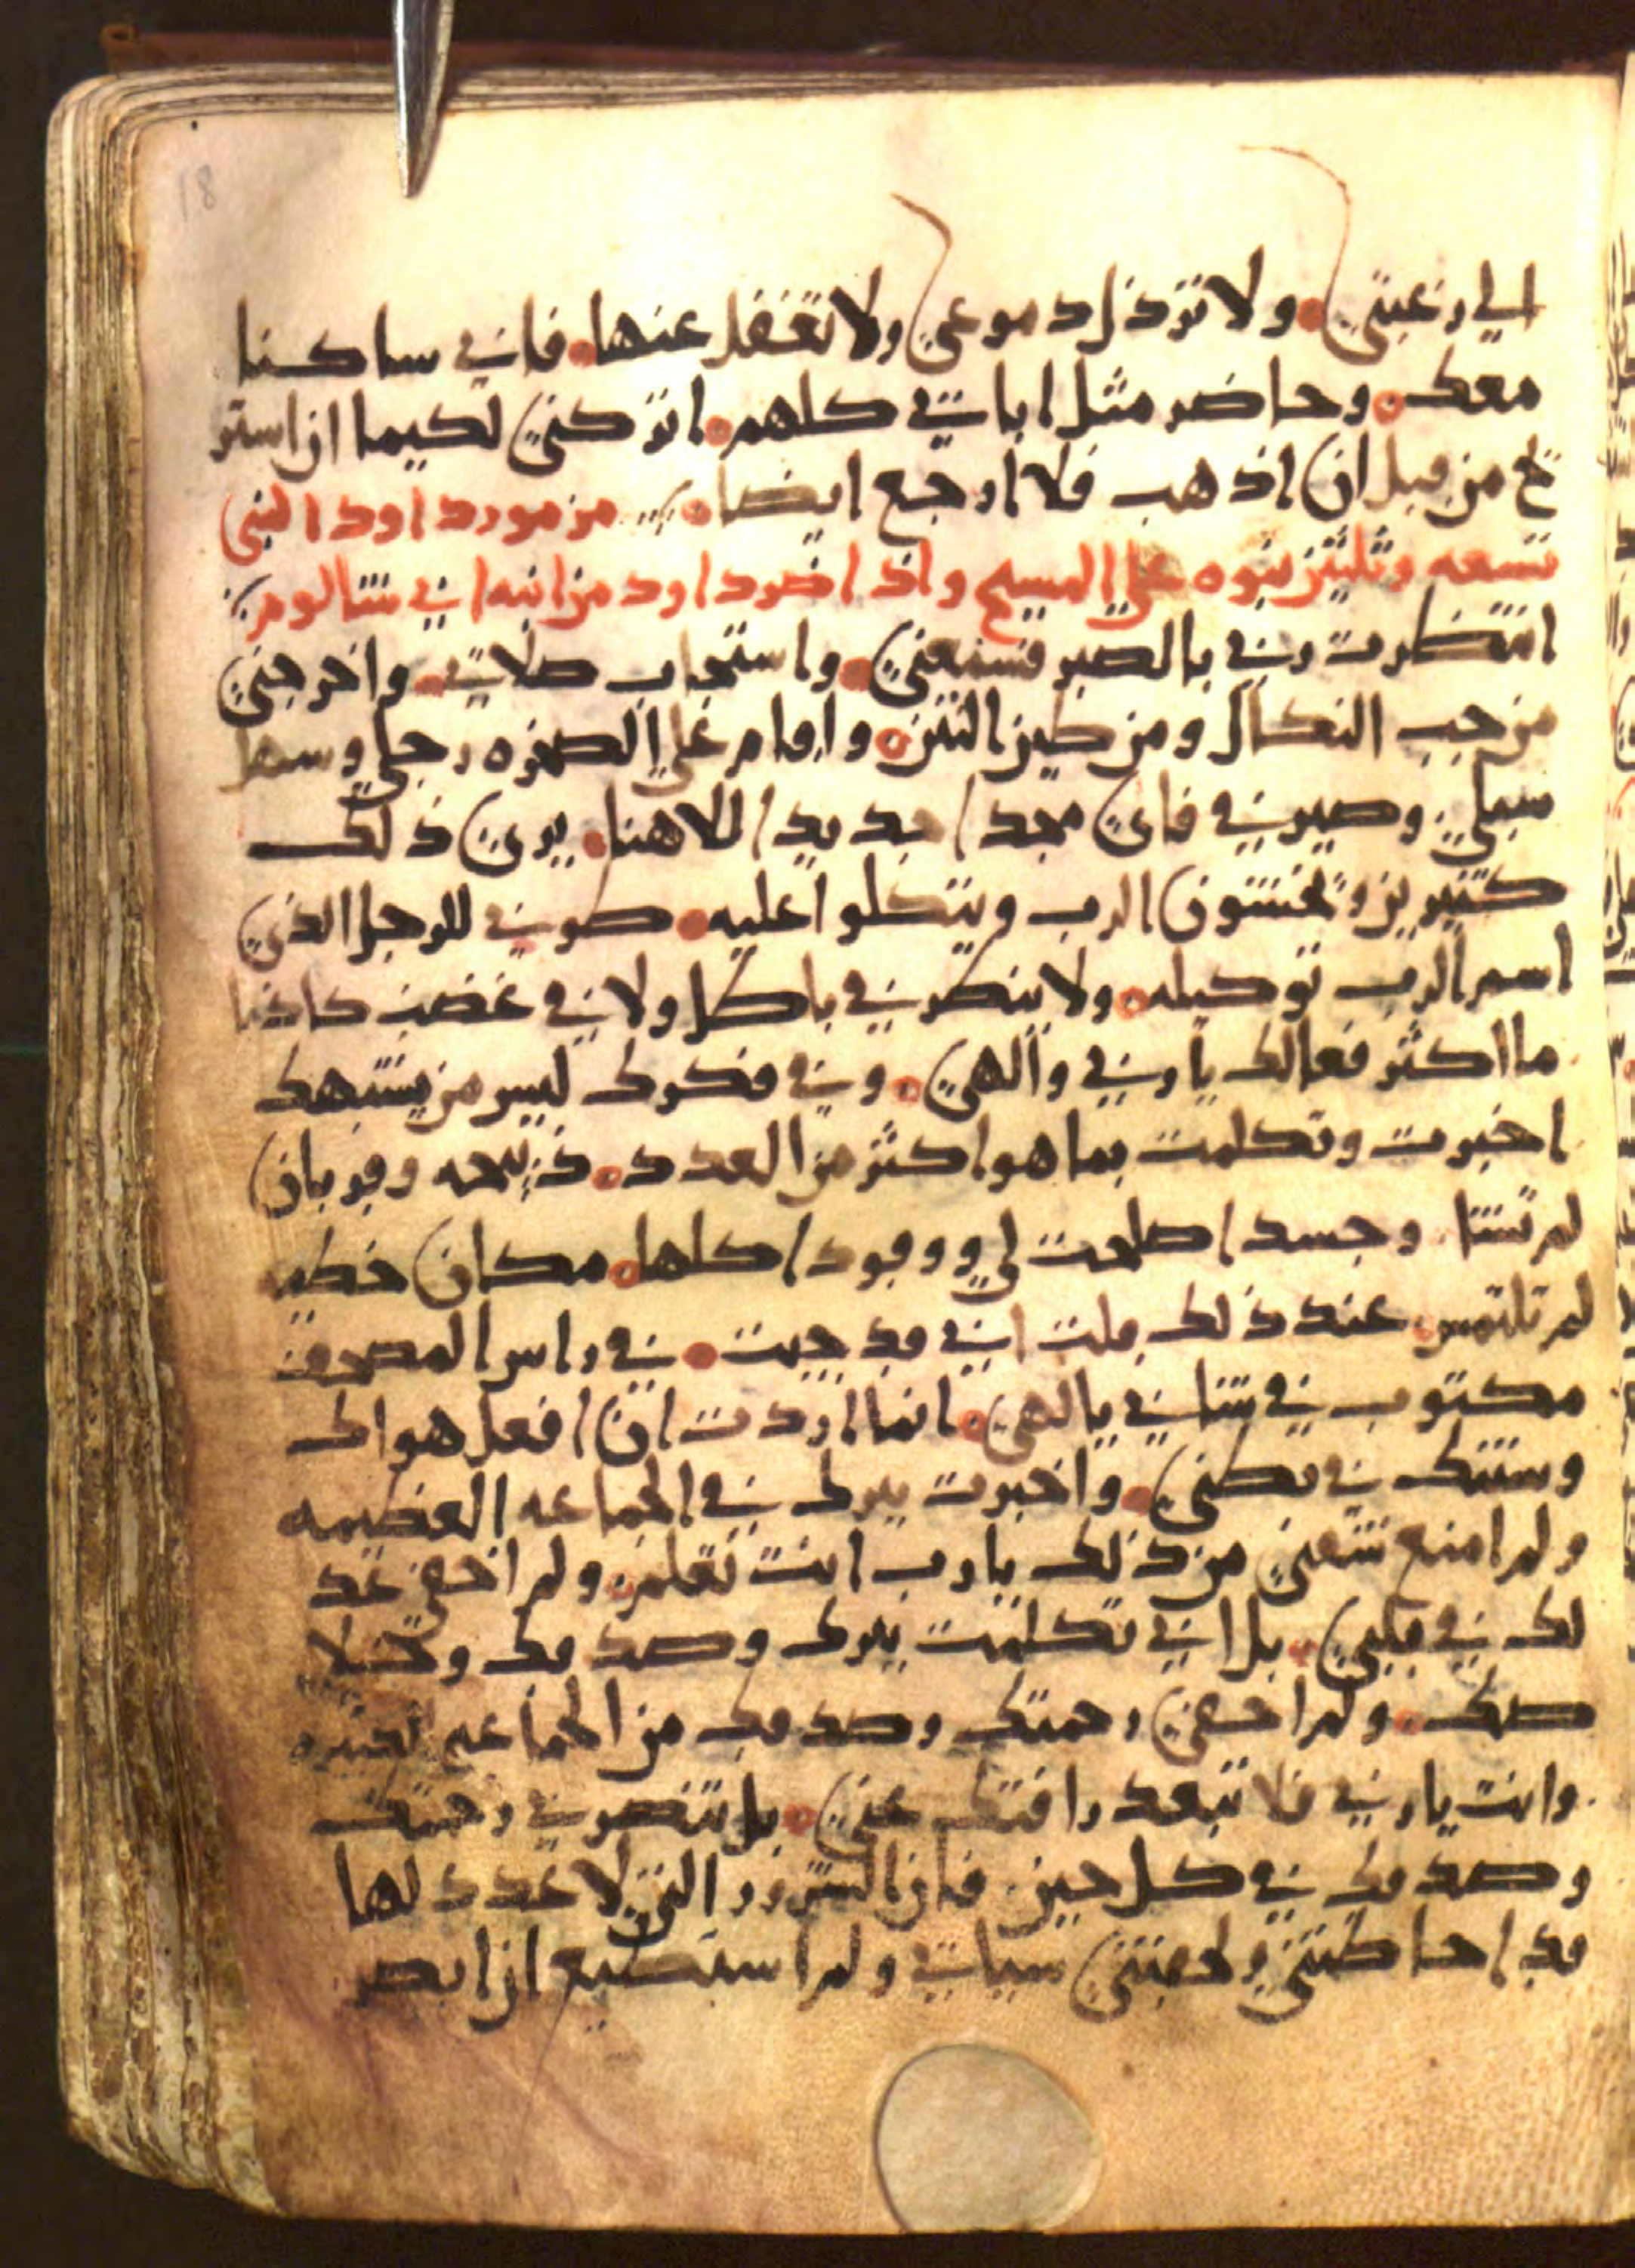 18
الي رغبتي ولا ترذل دموعي ولا تغفل عنها فاني ساكنا
معك وحاضر مثل اباتي كلهم اتركني لكيما ان استر
يح من قبل ان اذهب فلا ارجع ايضا مزمور داود النبي
تسعه وثلثين نبوه علي المسيح واذ اضرد داود من ابنه ابي شالوم
انتظرت ربي بالصبر فسمعني واستجاب صلاتي واخرجني
من جب النكال ومن طين النتن واقام علي الصخره رجلي وسهل
سبلي وصير في فاي مجدا جديدا للاهنا يرين ذلك
كثيرين ويخشون الرب ويتكلوا عليه طوبي للرجل الذي
اسم الرب توكيله ولا ينظر في باطل ولا في غضب كاذبا
ما اكثر فعالك يا ربي والهي وفي فكرك ليس من يشبهك
اخبرت وتكلمت بما هو اكثر من العدد ذبيحه وقربان
لم تشا وجسدا صلحت لي ووقودا كلها مكان خطيه
لم تلتمس عند ذلك قلت اني قد جيت في راس المصحف
مكتوب في شاني يالهي انما اردت ان افعل هواك
وسنتك في بطني واخبرت ببرك في الجماعه العظيمه
ولم امنع شفتي من ذلك يا رب انت تعلم ولم اخفي عد
لك في قلبي بل اني تكلمت ببرك وصدقك وبخلا
صك ولم اخفي رحمتك وصدقك من الجماعه الكثيره
وانت يا ربي فلا تبعد رافتك عني بل تنصرني رحمتك
وصدقك في كل حين فان الشرور التي لا عدد لها
قد احاطتني ولحقتني سياتي ولم استطيع ان ابصر